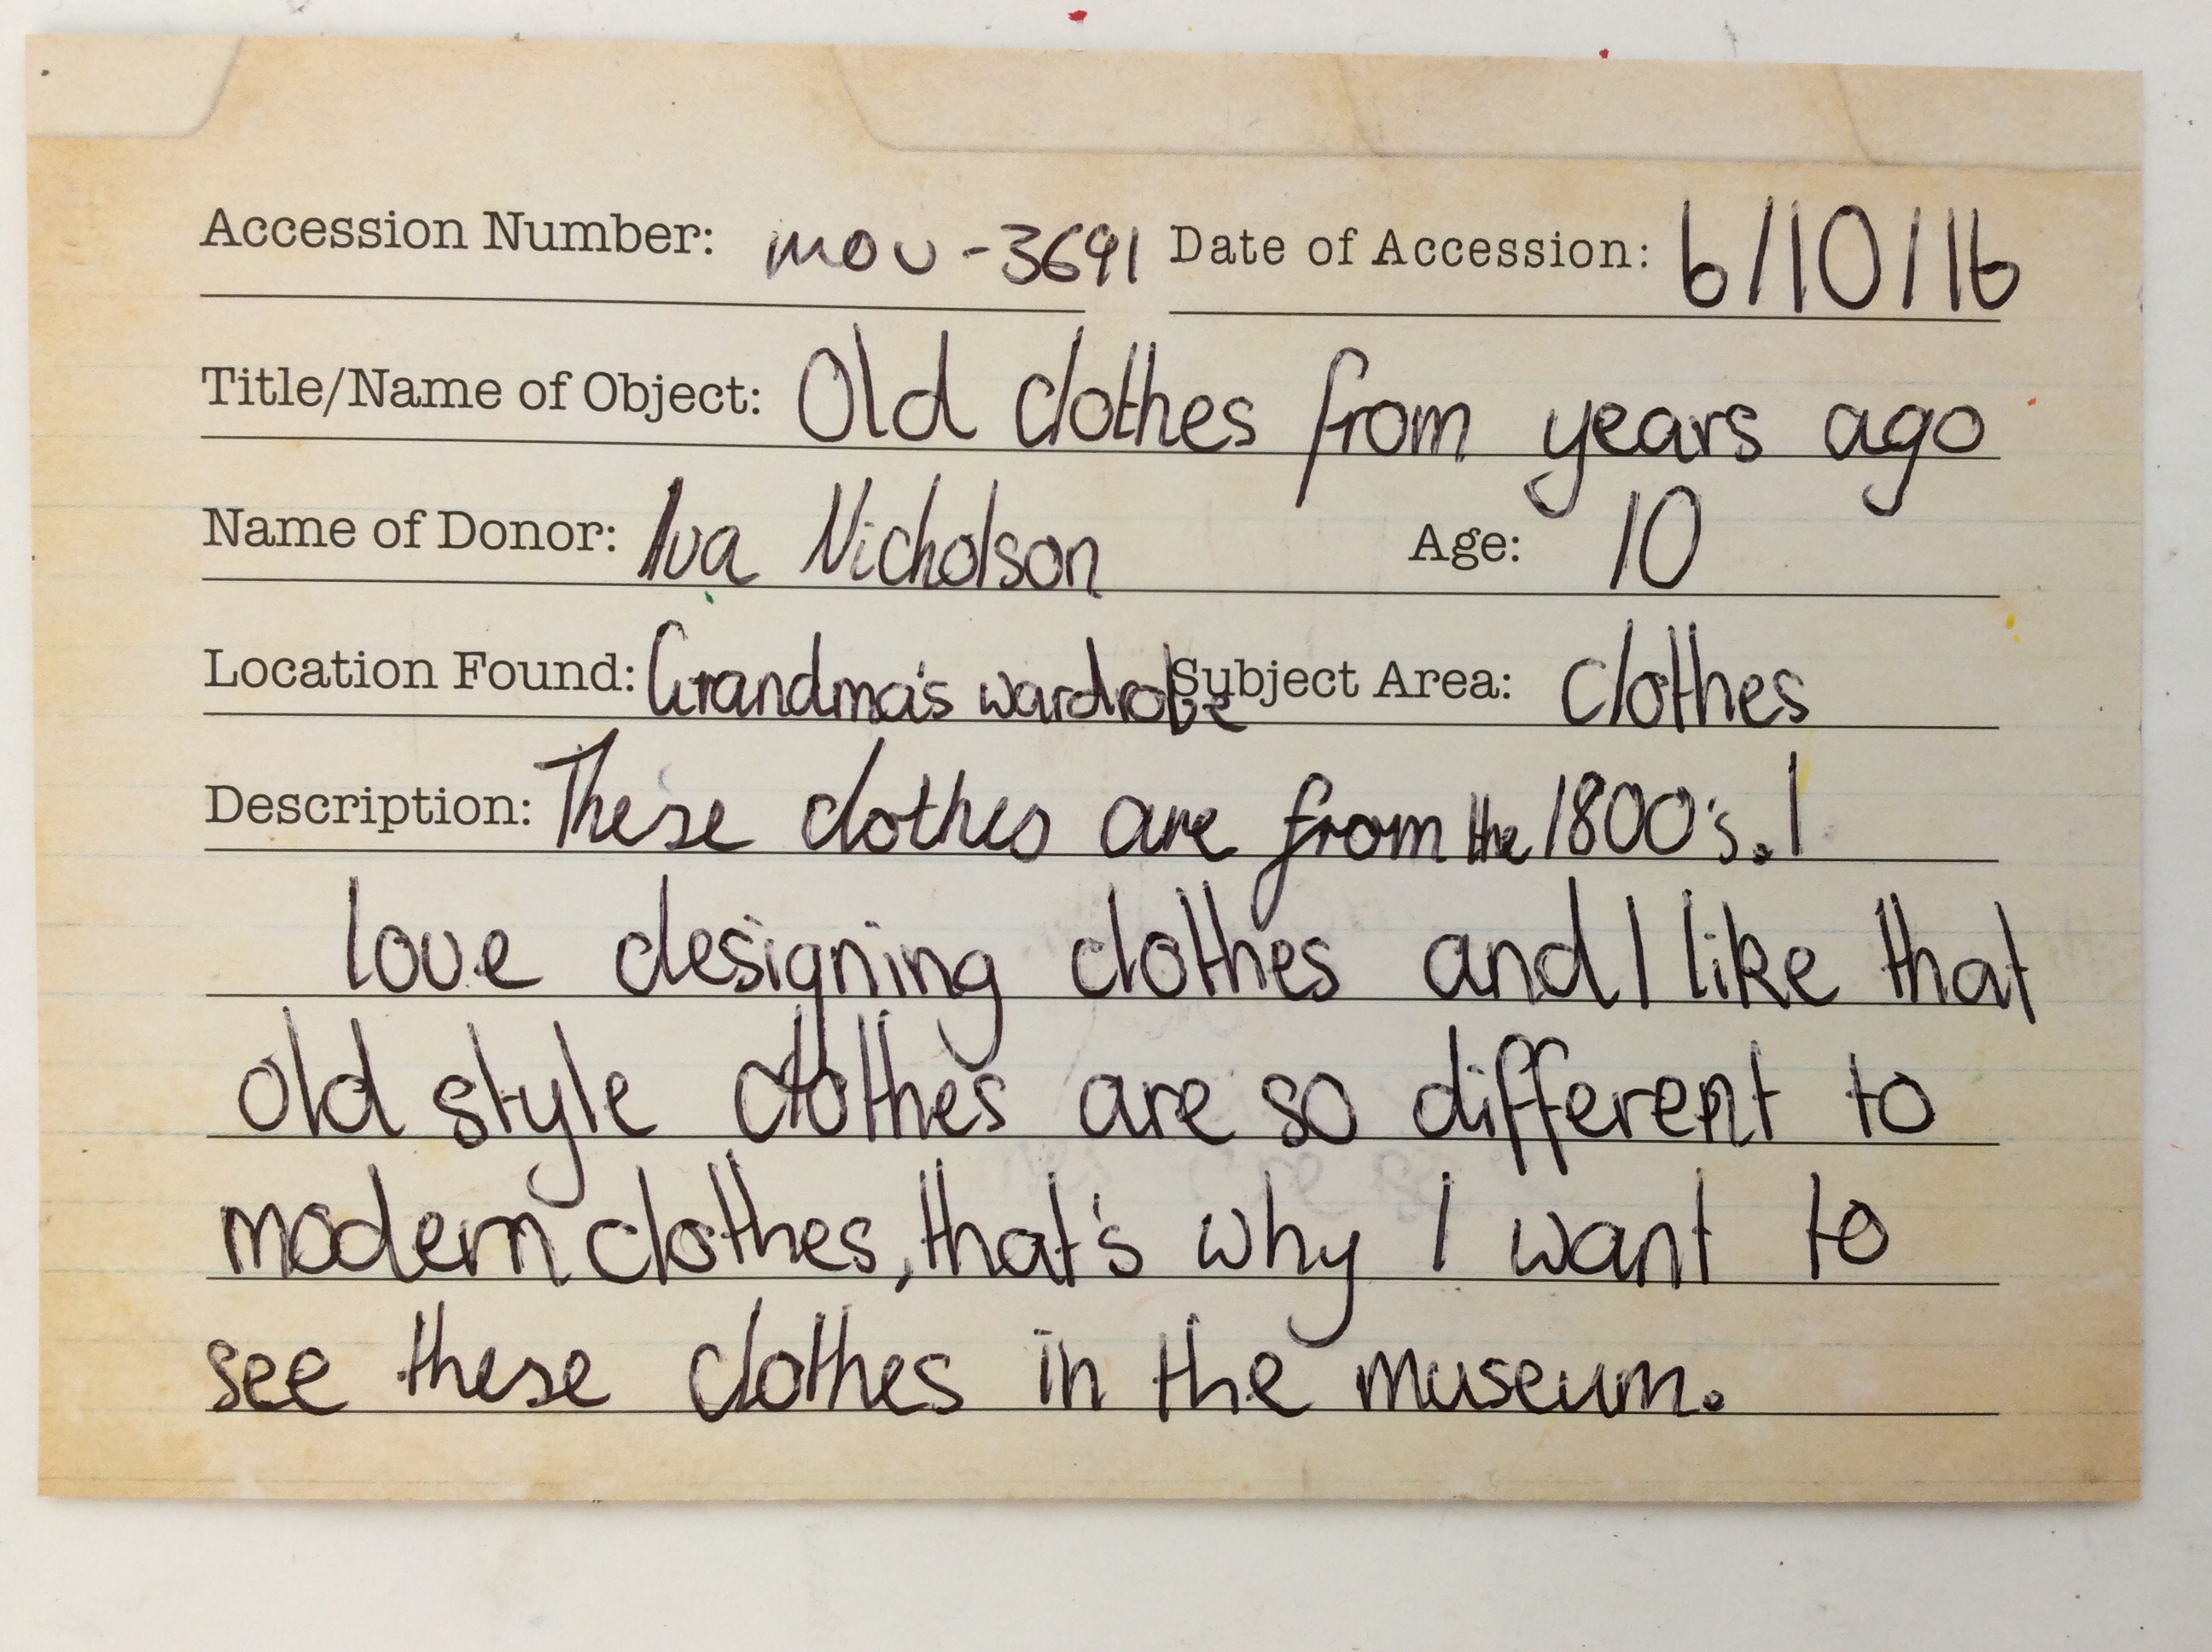 Accession Number: MOU-3691 Date of Accession: 6/10/16
Title/Name of Object: Old clothes from years ago
Name of Donor: Iva Nicholson Age: 10
Location Found: Grandma's wardrobe Subject Area: clothes
Description: These clothes are from the 1800's. I
love designing clothes and I like that
old style clothes are so different to
modern clothes, that's why I want to
see these clothes in the museum.